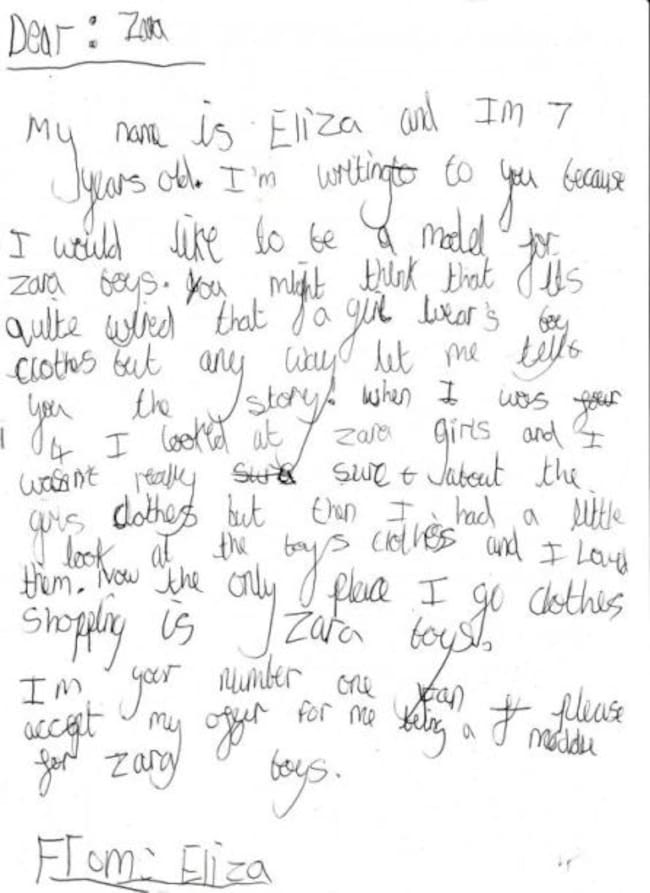 Dear: Zara
My name is Eliza and Im 7
years old. I'm writing to you because
I would like to be a model for
zara boys. You might think that its
quite wiied that a girl wear's boy
clothes but any way let me tell
you the story! when I was
4 I looked at zara girls and I
wasn't really sure about the
girls clothes but then I had a little
look at the boys clothes and I Loved
them. Now the only place I go clothes
shopping is Zara boys.
Im your number one fan please
accept my offer for me being a moddle
for zara boys.
From: Eliza